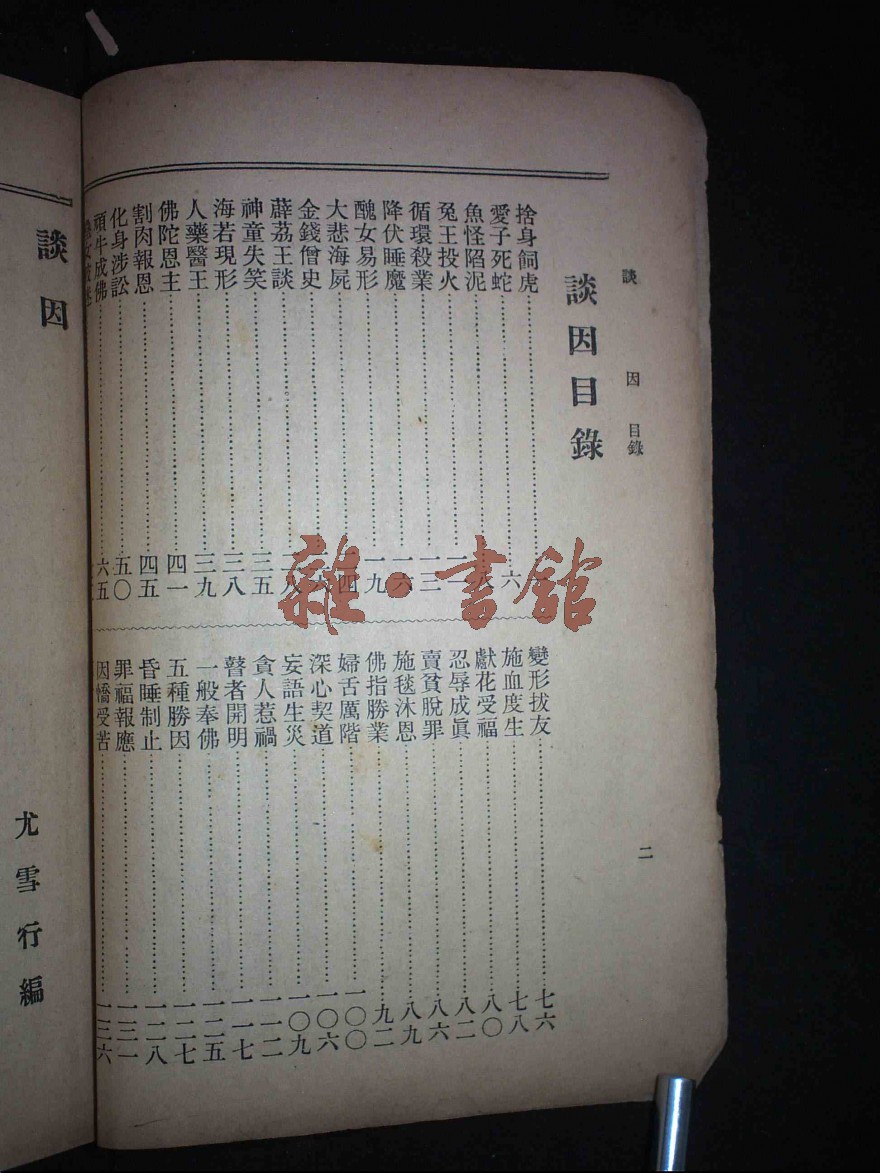 談因 目錄 二
談因目錄
捨身飼虎
愛子死蛇……六
魚怪陷泥……八
兔王投火
循環殺業……一三
降伏睡魔……一六
醜女易形……一九
大悲海屍
金錢僧史
薜荔王談
神童失笑……三五
海若現形……三八
人藥醫王……三九
佛陀恩主……四一
割肉報恩……四五
化身涉訟……五〇
頑牛成佛……六五
變形拔友……七六
施血度生……七八
獻花受福……八〇
忍辱成眞……八二
賣貧脫罪……八六
施毯沐恩……八九
佛指勝業……九二
婦舌厲階……一〇〇
深心契道……一〇六
妄語生災……一〇九
貪人惹禍……一一二
瞽者開明……一一七
一般奉佛……一二五
五種勝因……一二七
昏睡制止……一二八
罪福報應……一三一
因憍受苦……一三六
談因
尤雪行編
雜·書館